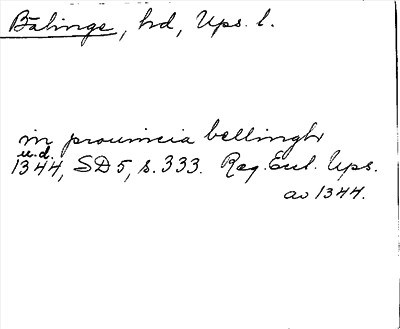 Bälinge, hd, Ups. l.
in prouincia bellingh
u.d.
1344, SD 5, s. 333. Reg. Eccl. Ups.
av 1344.